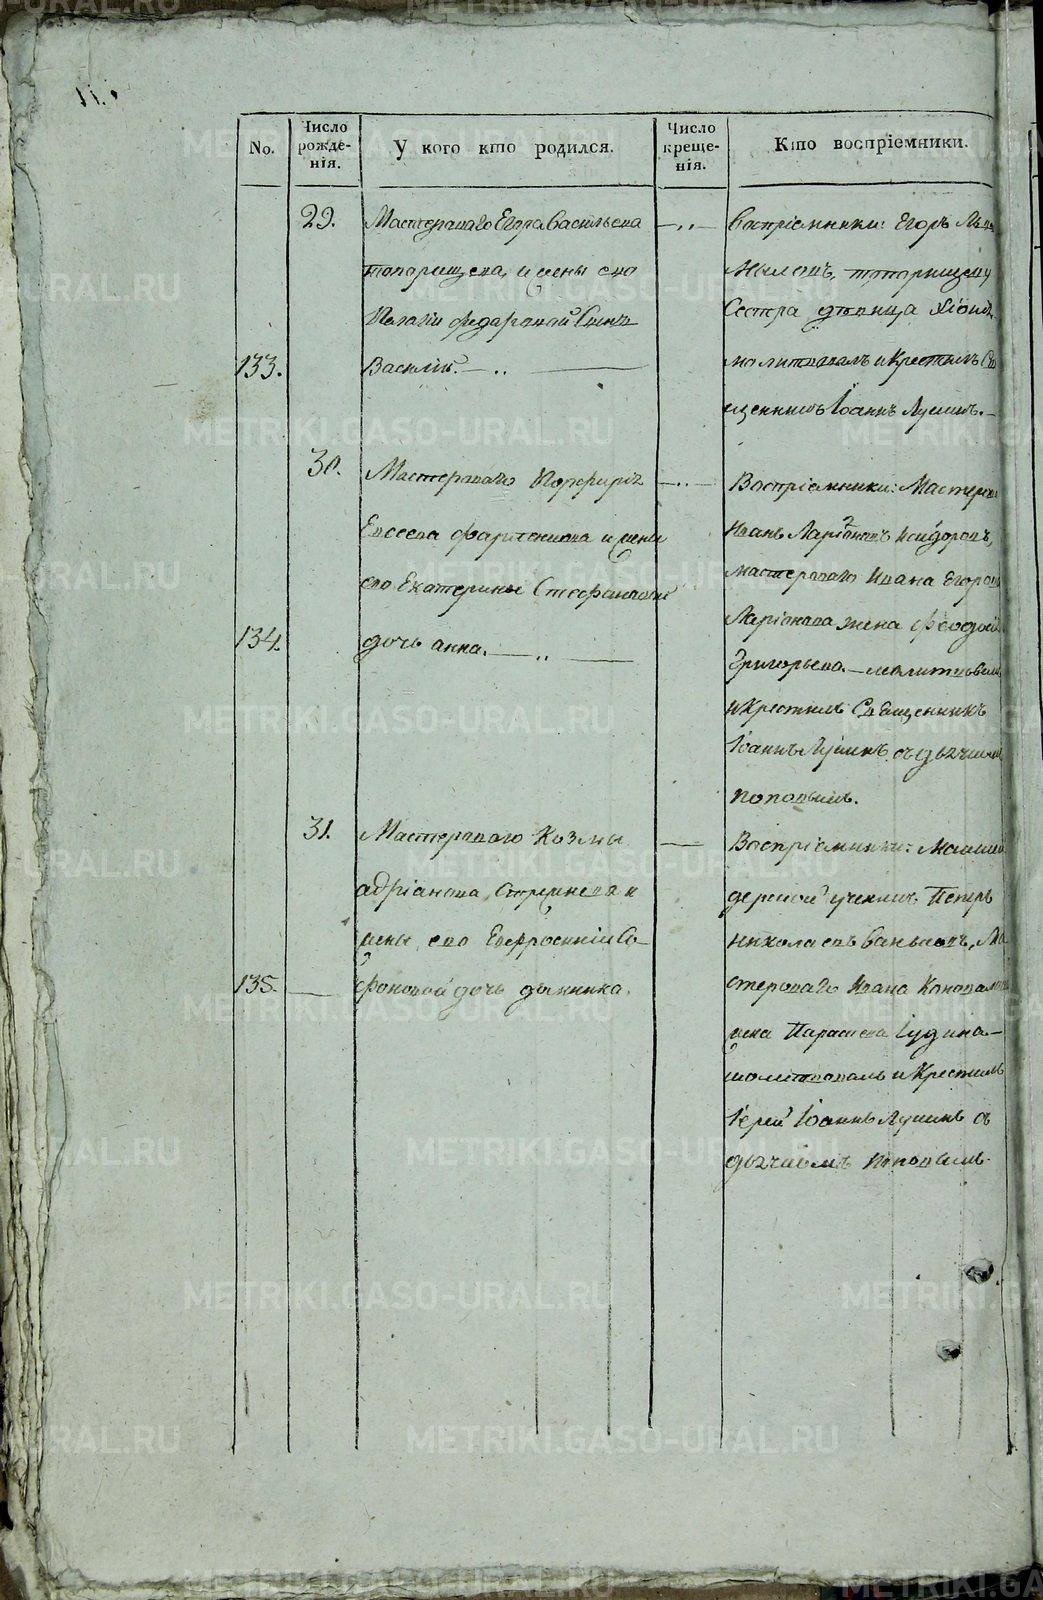 No.
Число рожде-нія.
У кого кто родился.
Число креще-нія.
Кто воспріемники.
29.
Мастероваго Егора Васильева
топорищева, и жены его
Пелагіи федаровой Сынъ
133.
Василій. — „ —
— „ —
воспріемники: Егоръ
топорищевъ
Сестра дѣвица
молитвовалъ и Крестилъ Свя
щенникъ Іоаннъ Лушинъ. —
30.
Мастероваго Порфирія
Евсеева и жены
его Екатерины Стефановой
134.
дочь анна. — „ —
— „ —
Воспріемники: Мастеров
Иванъ Ларіоновъ Исидоровъ,
мастероваго Ивана Егорова
Ларіонова жена Феодос
Григорьева. — молитвовалъ
и Крестилъ Священникъ
Іоаннъ Лушинъ съ дьячкомъ
поповымъ.
31.
Мастероваго Козмы
адріанова, и
жены его Евфросиніи Со-
135. —
фоновой дочь домника.
—
Воспріемники:
ученикъ Петръ
николаевъ Ма
стероваго Ивана Коновал
жена Параскева Іудина —
молитвовалъ и Крестилъ
Іерей Іоаннъ Лушинъ съ
дьячкомъ поповымъ.
METRIKI.GASO-URAL.RU